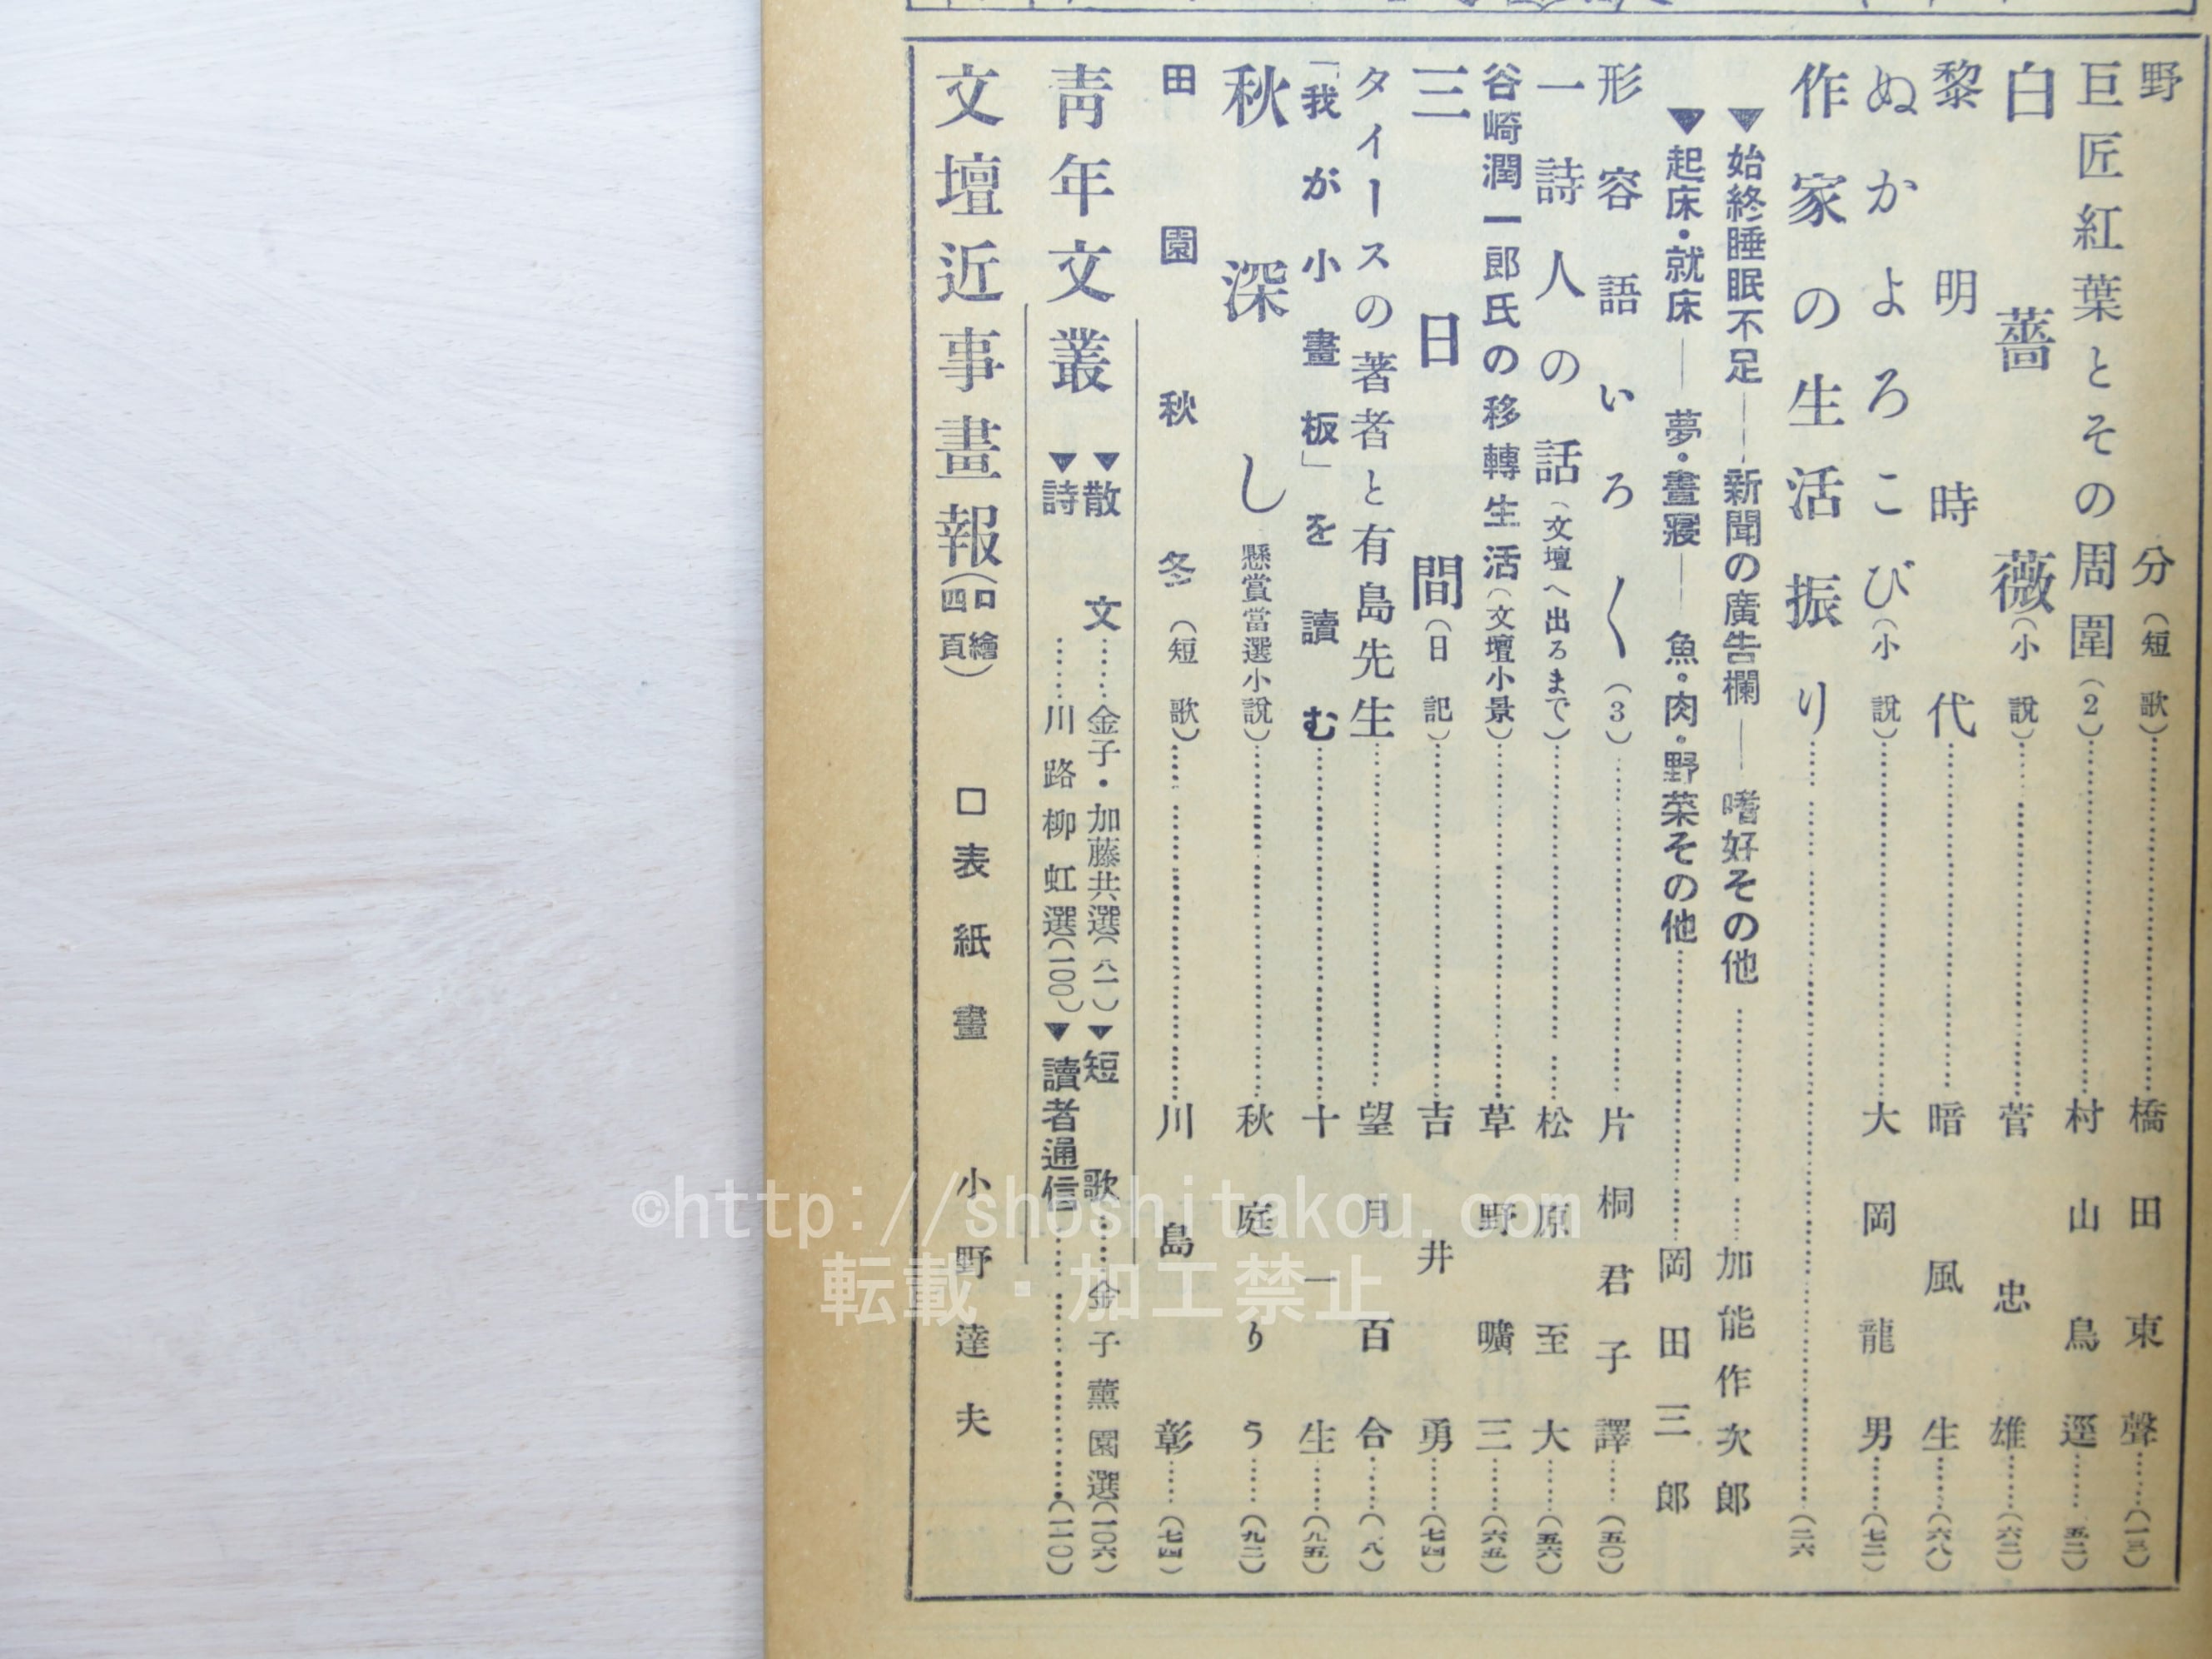 野分（短歌）……橋田東聲……（一三）
巨匠紅葉とその周圍（2）……村山鳥逕……（五二）
白薔薇（小說）……菅忠雄……（六二）
黎明時代……暗風生……（六八）
ぬかよろこび（小說）……大岡龍男……（七二）
作家の生活振り……（二六
▼始終睡眠不足――新聞の廣告欄――嗜好その他……加能作次郎
▼起床・就床――夢・晝寢――魚・肉・野菜その他……岡田三郎
形容語いろ〱（3）……片桐君子譯……（五〇）
一詩人の話（文壇へ出ろまで）……松原至大……（五六）
谷崎潤一郎氏の移轉生活（文壇小景）……草野曠三……（六五）
三日間（日記）……吉井勇……（七四）
タイースの著者と有島先生……望月百合……（一八）
「我が小畫板」を讀む……十一生……（九五）
秋深し（懸賞當選小說）……秋庭りう……（九二）
田園秋冬（短歌）……川島彰……（七四）
靑年文叢
▼散文……金子・加藤共選（八一）▼短歌……金子薰園選（一〇六）
▼詩……川路柳虹選（一〇〇）▼讀者通信……（一一〇）
文壇近事畫報（口繪四頁）　□表紙畫　小野達夫
©http://shoshitakou.com
転載・加工禁止